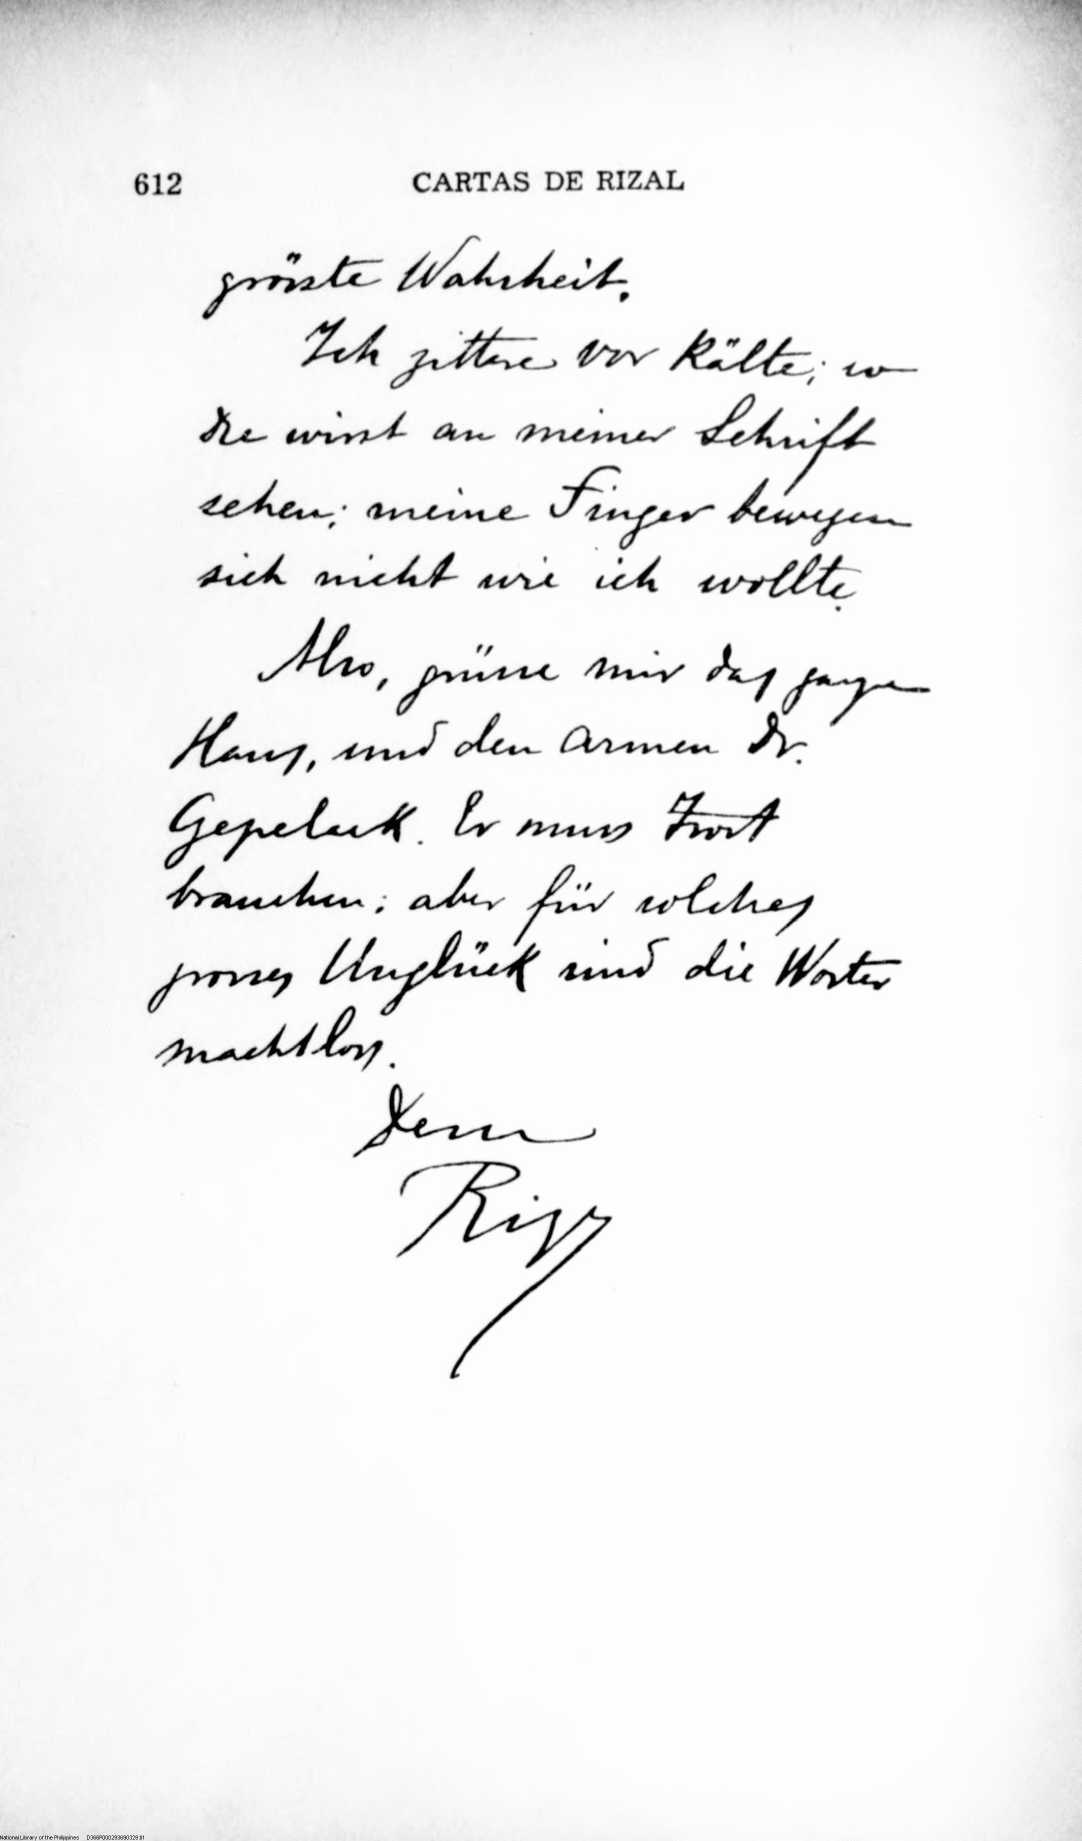 612 CARTAS DE RIZAL
grösste Wahrheit.
Ich zittere vor Kälte; so
Du wirst an meiner Schrift
sehen; meine Finger bewegen
sich nicht wie ich wollte.
Also, grüsse mir das ganze
Haus, und den armen Dr.
Gepeleck. Er muss Trost
brauchen; aber für solches
grosses Unglück sind die Worter
machtlos.
Dein
Rizal
National Library of the Philippines